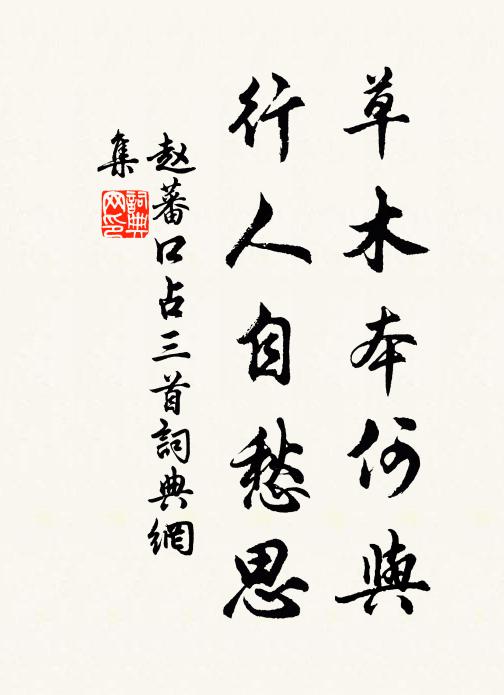 草木本何與
行人自愁思
赵蕃口占三首詞典網
集
詞典
网印